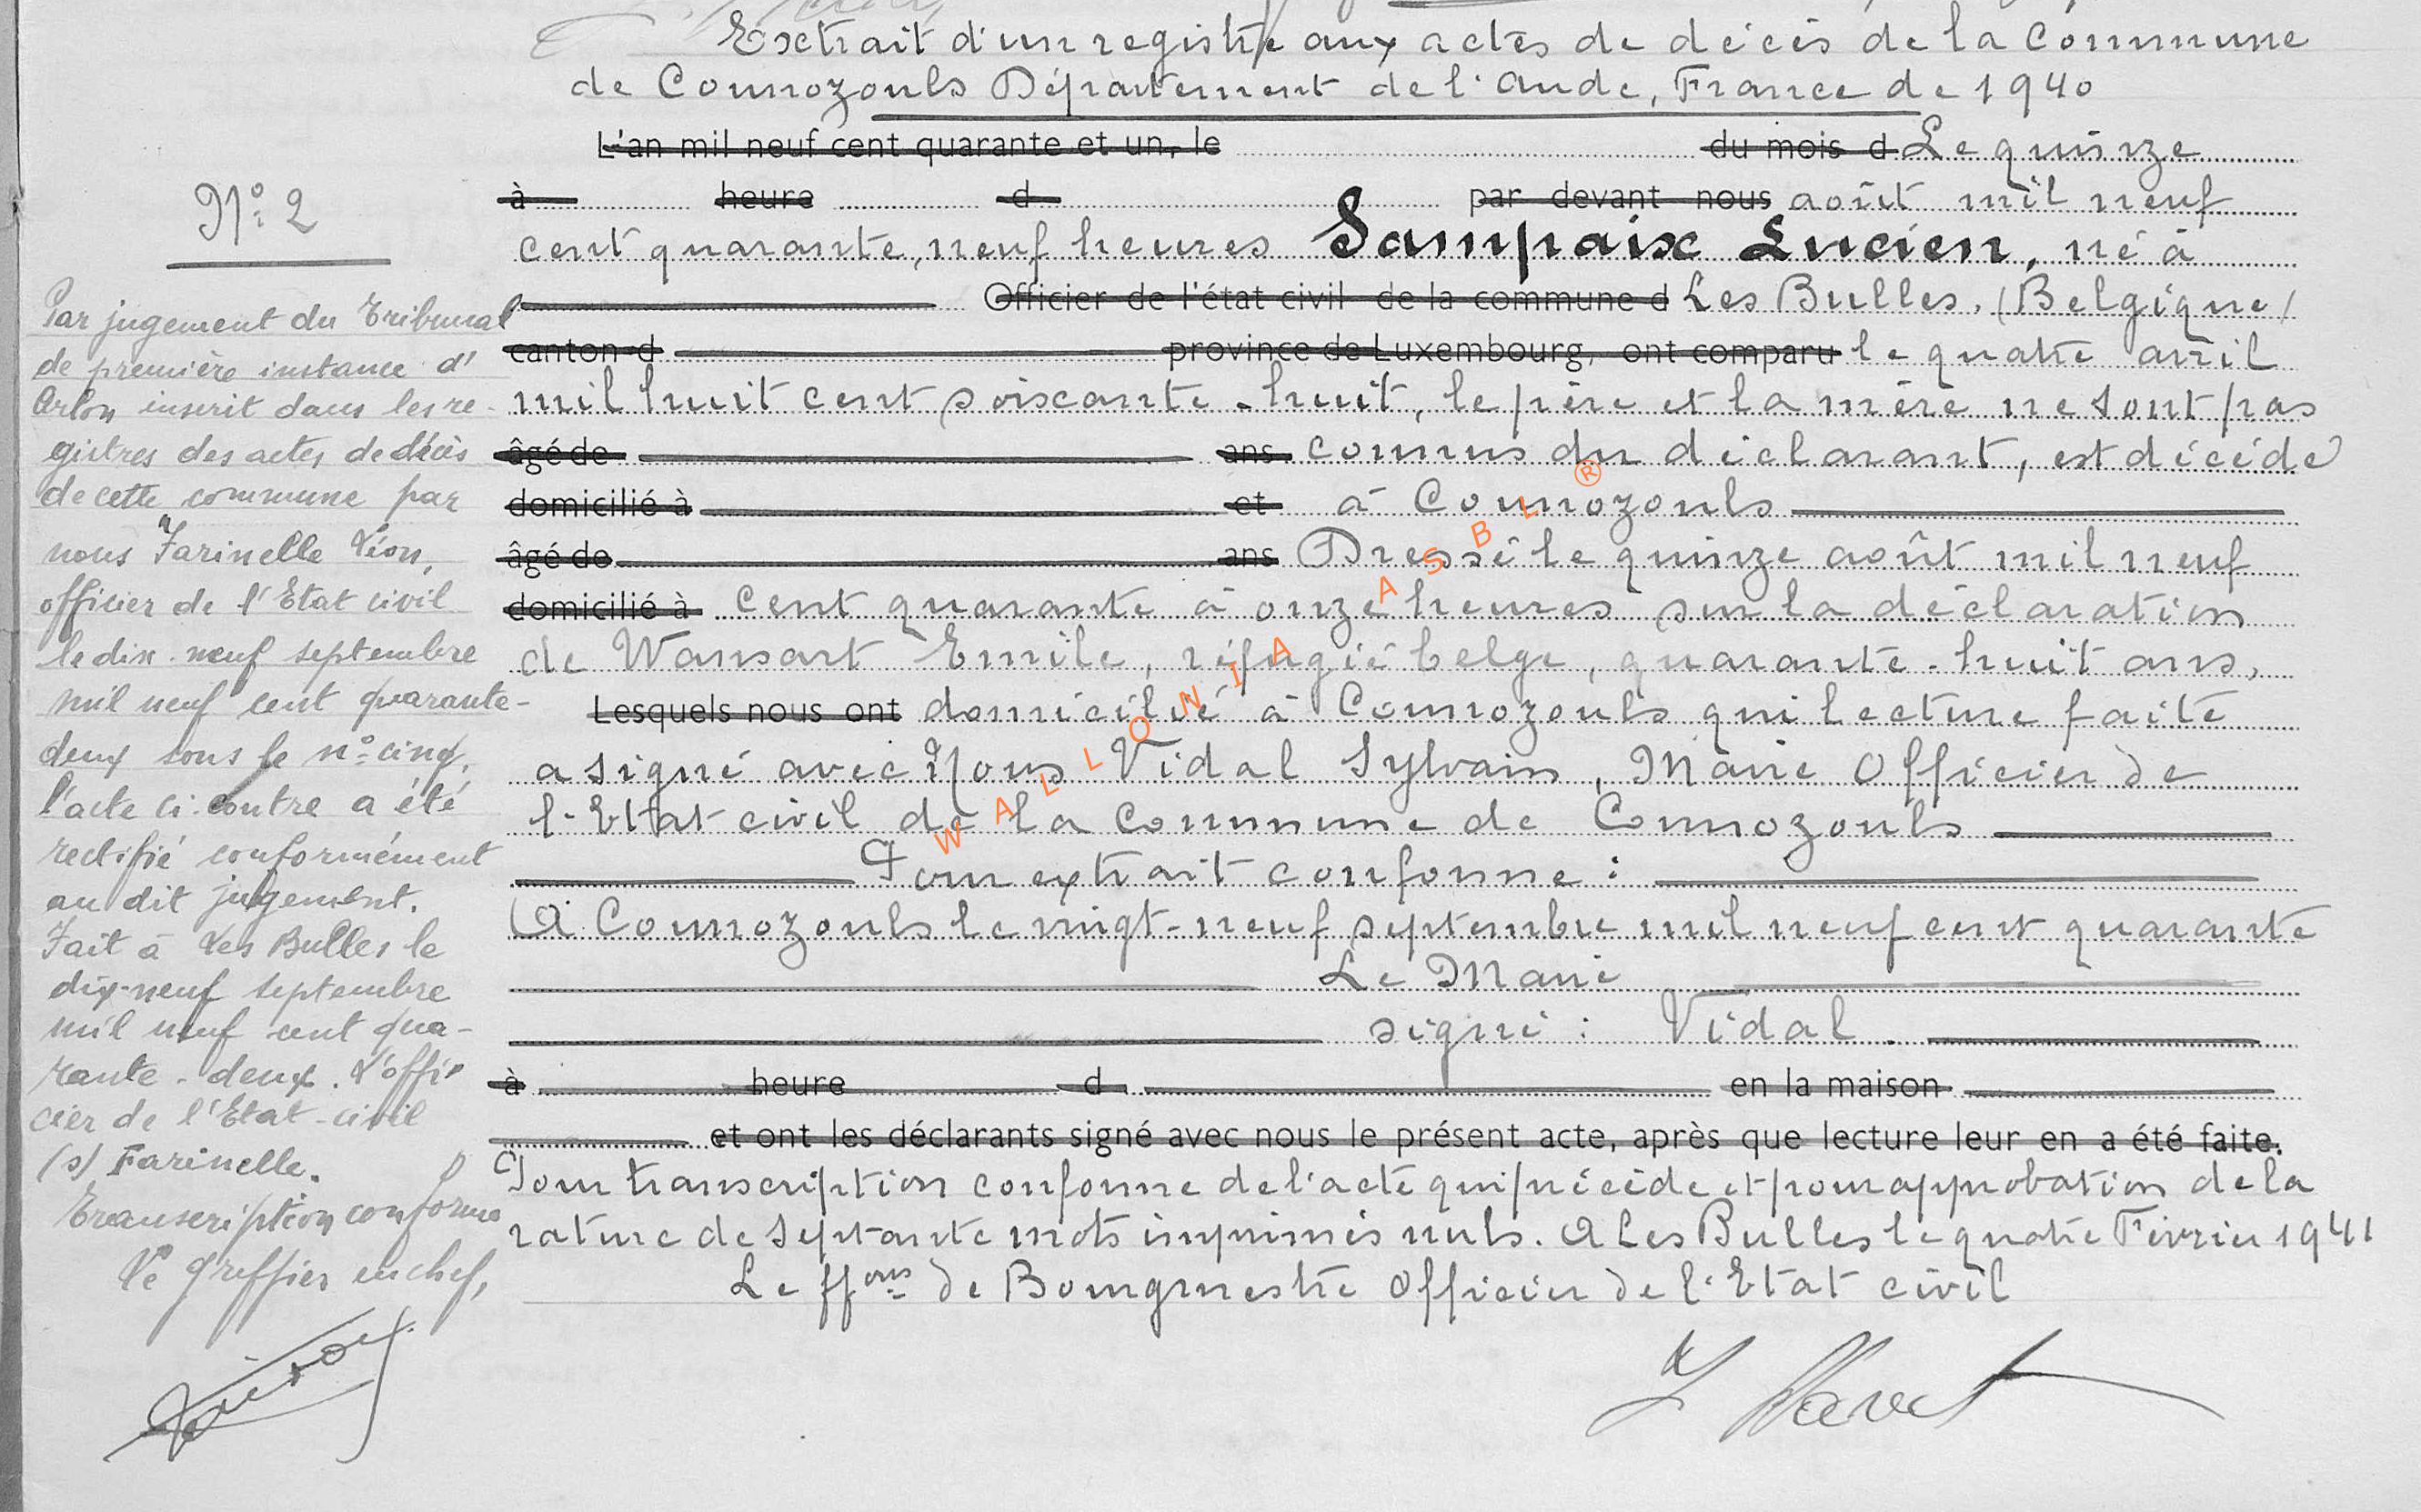 Extrait d'un registre aux actes de décès de la Commune
de Counozouls Département de l'Aude, France de 1940
L'an mil neuf cent quarante et un, le du mois d Le quinze
à heure d par devant nous août mil neuf
cent quarante, neuf heures Sampaix Lucien, né à
Officier de l'état civil de la commune d Les Bulles, (Belgique)
canton d province de Luxembourg, ont comparu le quatre avril
mil huit cent soixante-huit, le père et la mère ne sont pas
âgé de ans connus du déclarant, est décédé
domicilié à et à Counozouls
âgé de ans Dressé le quinze août mil neuf
domicilié à cent quarante à onze heures sur la déclaration
de Wansart Emile, réfugié belge, quarante-huit ans,
Lesquels nous ont domicilié à Counozouls qui lecture faite
a signé avec Nous Vidal Sylvain, Maire Officier de
l'Etat civil de la Commune de Counozouls
Pour extrait conforme :
A Counozouls le vingt-neuf septembre mil neuf cent quarante
Le Maire
signé : Vidal.
à heure d en la maison
et ont les déclarants signé avec nous le présent acte, après que lecture leur en a été faite.
Pour transcription conforme de l'acte qui précède et pour approbation de la
rature de septante mots imprimés nuls. A Les Bulles le quatre Février 1941
Le ffons de Bourgmestre Officier de l'Etat civil
N° 2
Par jugement du Tribunal
de première instance d'
Arlon inscrit dans les re-
gistres des actes de décès
de cette commune par
nous Farinelle Léon,
officier de l'Etat civil
le dix-neuf septembre
mil neuf cent quarante-
deux sous le n° cinq,
l'acte ci-contre a été
rectifié conformément
au dit jugement.
Fait à Les Bulles le
dix-neuf septembre
mil neuf cent qua-
rante-deux. L'offi-
cier de l'Etat-civil
(s) Farinelle.
Transcription conforme
Le Greffier en chef,
WALLONIA ASBL ®